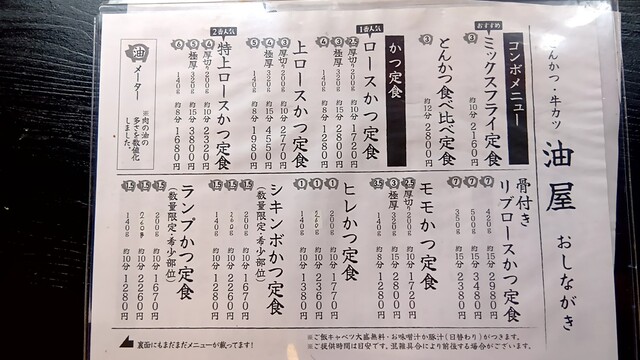 とんかつ・牛カツ
油屋
おしながき
コンボメニュー
おすすめ
ミックスフライ定食
③ 約10分 2160円
とんかつ食べ比べ定食
③ 約12分 2800円
かつ定食
1番人気
ロースかつ定食
2.5 厚切り 200g 約10分 1720円
③ 極厚 320g 約15分 2800円
④ 140g 約8分 1280円
上ロースかつ定食
③ 厚切り 200g 約10分 2770円
④ 極厚 320g 約15分 4550円
⑤ 140g 約8分 1980円
2番人気
特上ロースかつ定食
④ 厚切り 200g 約10分 2320円
⑤ 極厚 320g 約15分 3800円
⑥ 140g 約8分 1680円
油
メーター
※肉の油の
多さを数値化
しました。
骨付き
リブロースかつ定食
⑦ 420g 約15分 2980円
⑦ 500g 約15分 3480円
⑦ 350g 約15分 2380円
モモかつ定食
2.5 厚切り 200g 約10分 1720円
③ 極厚 320g 約12分 2800円
3.5 140g 約8分 1280円
ヒレかつ定食
① 200g 約10分 1770円
① 270g 約10分 2360円
① 140g 約10分 1380円
シキンボかつ定食
(数量限定・希少部位)
1.5 200g 約10分 1670円
1.5 260g 約10分 2260円
1.5 140g 約10分 1280円
ランプかつ定食
(数量限定・希少部位)
1.5 200g 約10分 1670円
1.5 260g 約10分 2260円
1.5 140g 約10分 1280円
裏面にもまだまだメニューが載ってます!
※ご飯キャベツ大盛無料・お味噌汁か豚汁(日替わり)がつきます。
※ご提供時間は目安です。混雑具合により前後する場合がございます。